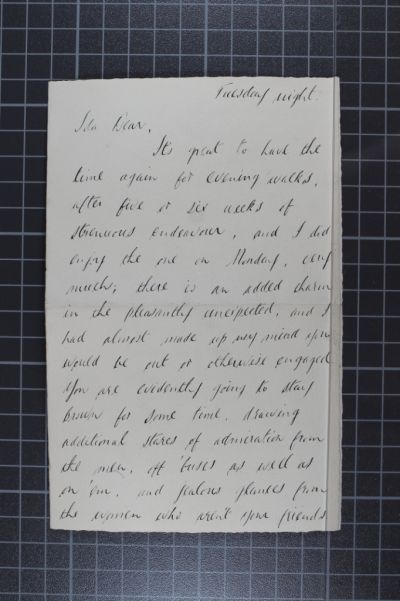 Tuesday night.
Ida Dear,
It's great to have the
time again for evening walks,
after five or six weeks of
strenuous endeavour, and I did
enjoy the one on Monday, very
much; there is an added charm
in the pleasantly unexpected, and I
had almost made up my mind you
would be out or otherwise engaged
You are evidently going to stay
brown for some time, drawing
additional stares of admiration from
the men, off 'buses as well as
on 'em, and jealous glances from
the women who aren't your friends